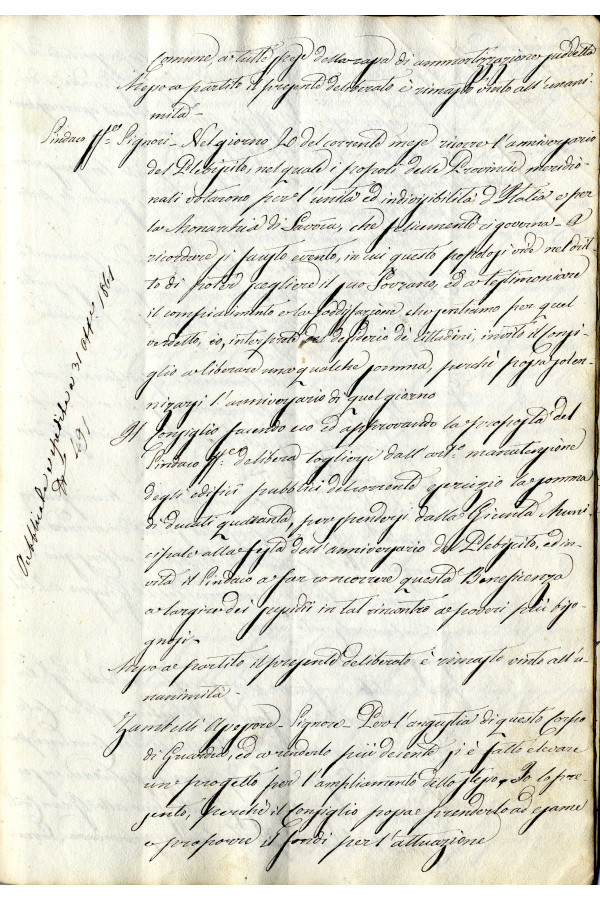 Comune, a tutte spese della casa di ammortizzazione suddetta
Messo a partito il presente deliberato è rimasto vinto all'unani-
mità -
Sindaco ff.ne Signori - Nel giorno 20 del corrente mese ricorre l'anniversario
del Plebiscito, nel quale i popoli delle Provincie meridio-
nali votarono per l'unità ed indivisibilità d'Italia e per
la Monarchia di Savoia, che felicemente ci governa - A
ricordare sì fausto evento, in cui questo popolo si vide nel drit-
to di poter scegliere il suo Sovrano, ed a testimoniare
il compiacimento e la soddisfazione che sentiamo per quel
verdetto, io, interprete del desiderio de' Cittadini, invito il Consi-
glio a liberare una qualche somma, perchè possa solen-
nizzarsi l'anniversario di quel giorno
Il Consiglio facendo eco ed approvando la proposta del
Sindaco ff. delibera togliersi dall'art. manutenzione
degli edifici pubblici del corrente esercizio la somma
di ducati quaranta, per spendersi dalla Giunta Muni-
cipale alla festa dell'anniversario del Plebiscito, ed in-
vita il Sindaco a far concorrere questa Beneficenza
a largire dei sussidii in tal rincontro a' poveri più biso-
gnosi -
Messo a partito il presente deliberato è rimasto vinto all'u-
nanimità -
Zambelli Assessore - Signori - Per l'angustia di questo Corpo
di Guardia, ed a renderlo più decente, si è fatto elevare
un progetto per l'ampliamento dello stesso, Io lo pre-
sento, perchè il Consiglio possa prenderlo ad esame
e proporre i fondi per l'attuazione
Pubblicata e spedita a 31 1861
N. 691